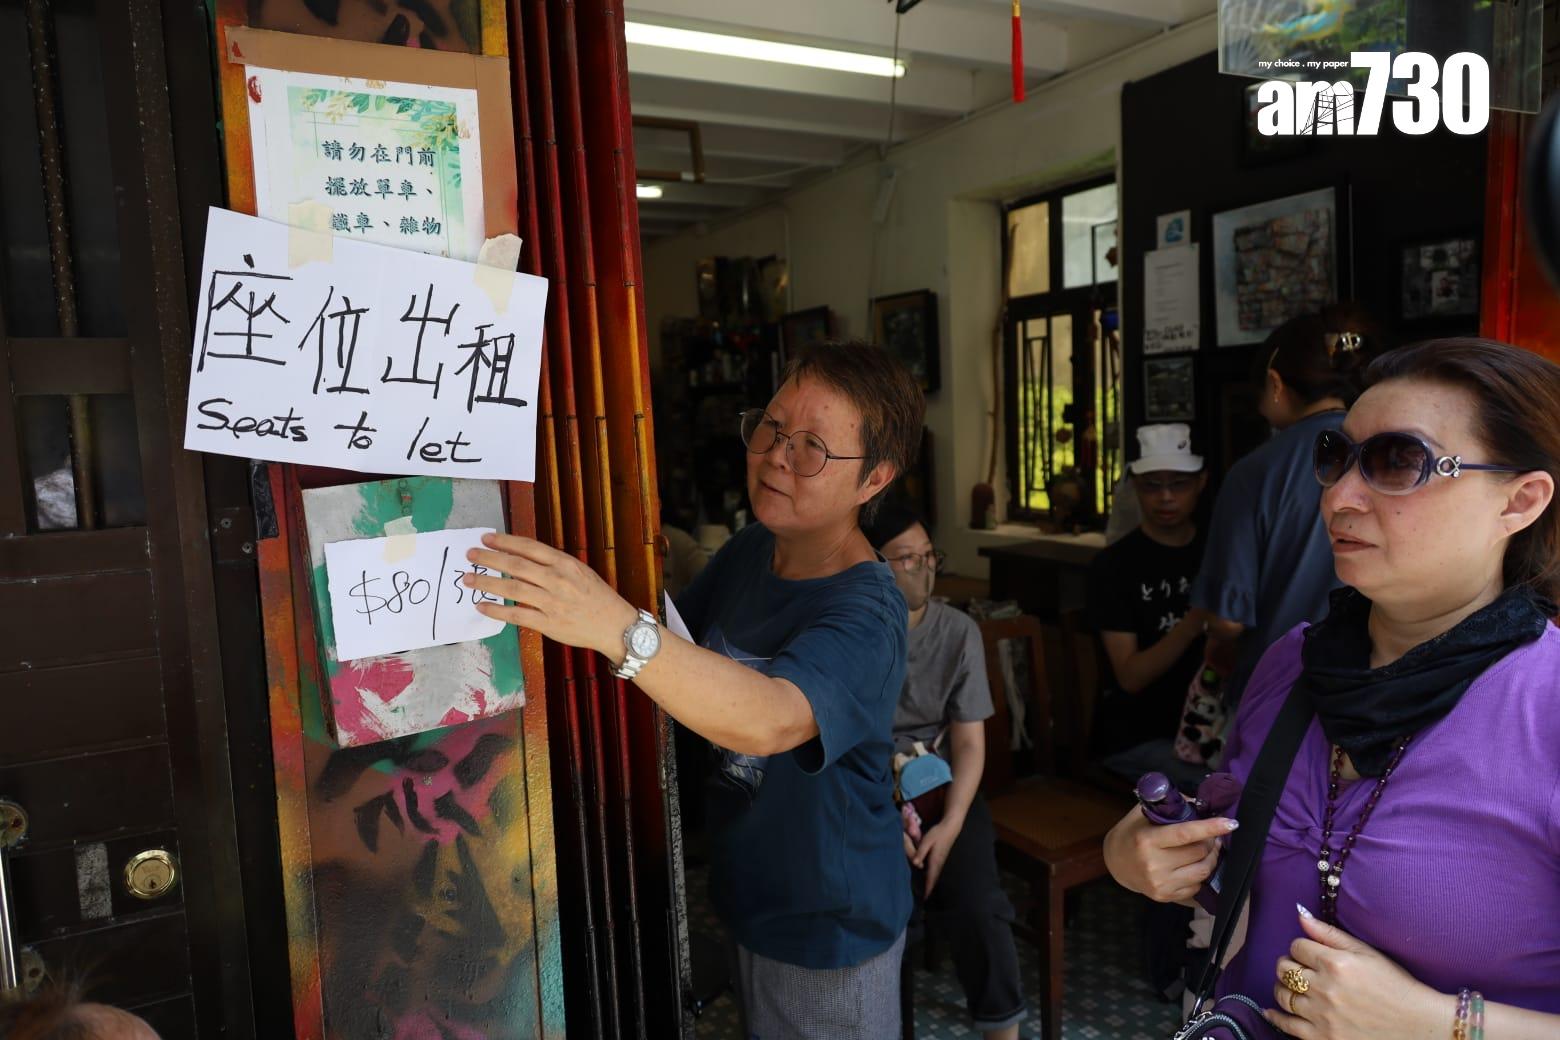 my choice . my paper
am730
請勿在門前
擺放單車、
鐵車、雜物
座位出租
Seats to let
$80/張
とり